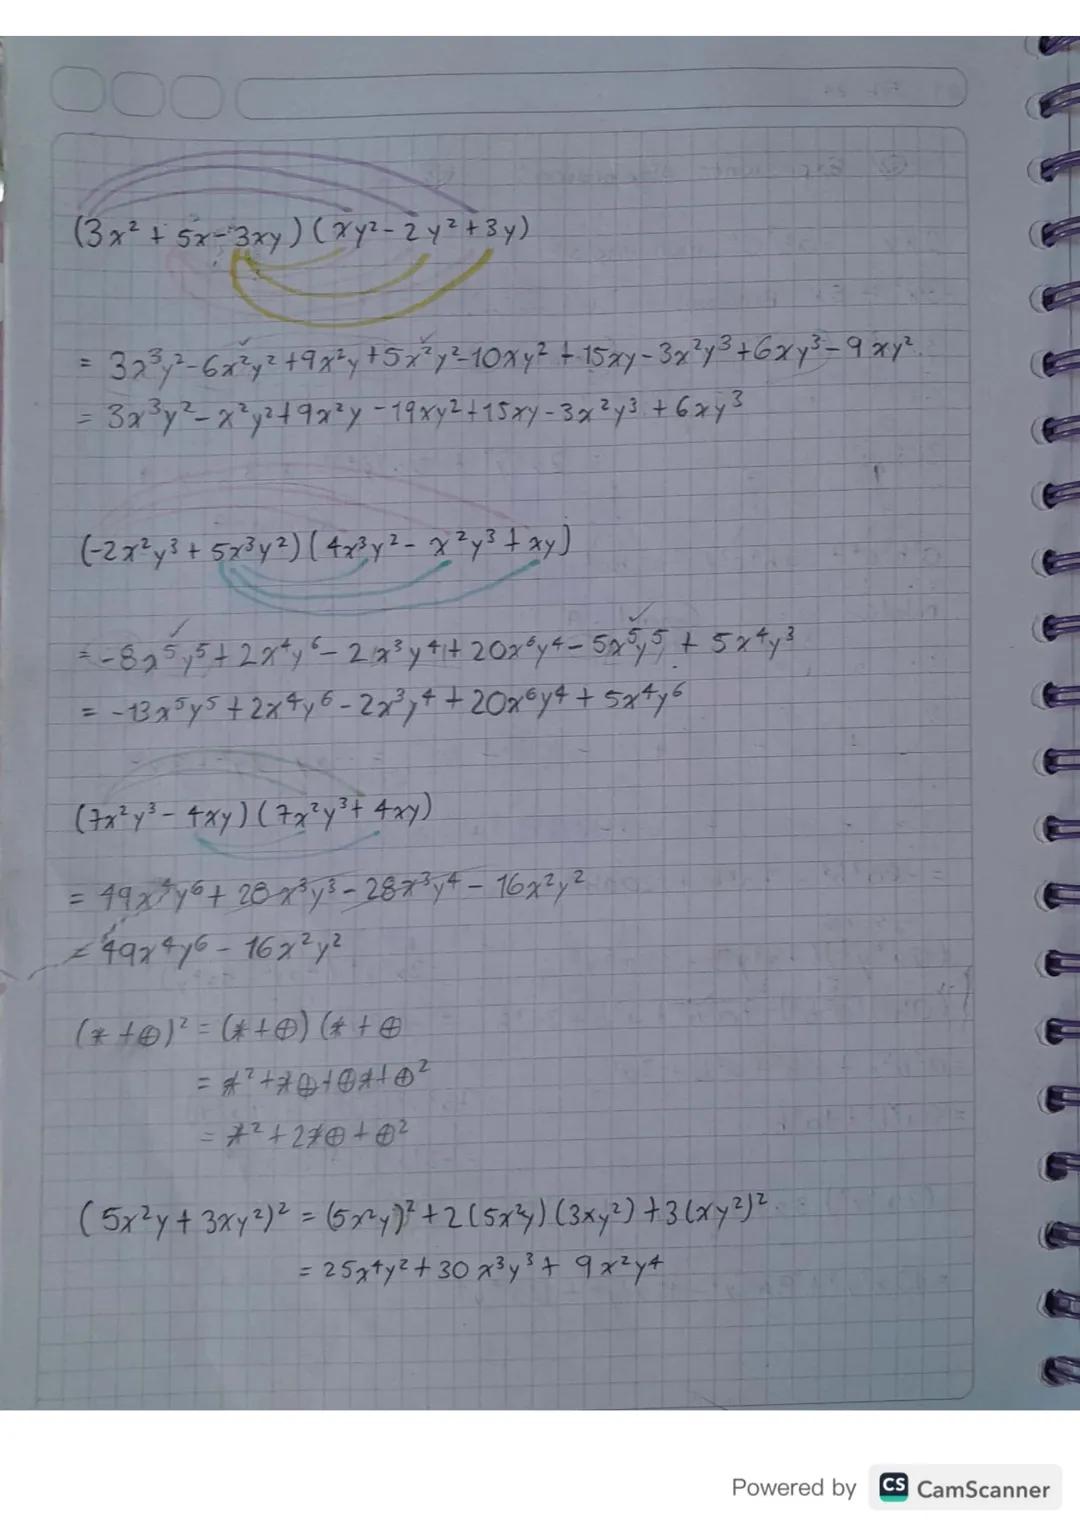 (3x² + 5x - 3xy)(xy² - 2y² + 3y)
= 3x³y² - 6x²y² + 9x²y + 5x²y² - 10xy² + 15xy - 3x²y³ + 6xy³ - 9xy²
= 3x³y² - x²y² + 9x²y - 19xy² + 15xy - 3x²y³ + 6xy³
(-2x²y³ + 5x³y²)(4x³y² - x²y³ + xy)
= -8x⁵y⁵ + 2x⁴y⁶ - 2x³y⁴ + 20x⁶y⁴ - 5x⁵y⁵ + 5x⁴y³
= -13x⁵y⁵ + 2x⁴y⁶ - 2x³y⁴ + 20x⁶y⁴ + 5x⁴y⁶
(7x²y³ - 4xy)(7x²y³ + 4xy)
= 49x⁴y⁶ + 28x³y³ - 28x³y⁴ - 16x²y²
= 49x⁴y⁶ - 16x²y²
(* + ⊕)² = (* + ⊕)(* + ⊕
= *² + *⊕ + ⊕* + ⊕²
= *² + 2*⊕ + ⊕²
(5x²y + 3xy²)² = (5x²y)² + 2(5x²y)(3xy²) + 3(xy²)²
= 25x⁴y² + 30x³y³ + 9x²y⁴
Powered by CS CamScanner